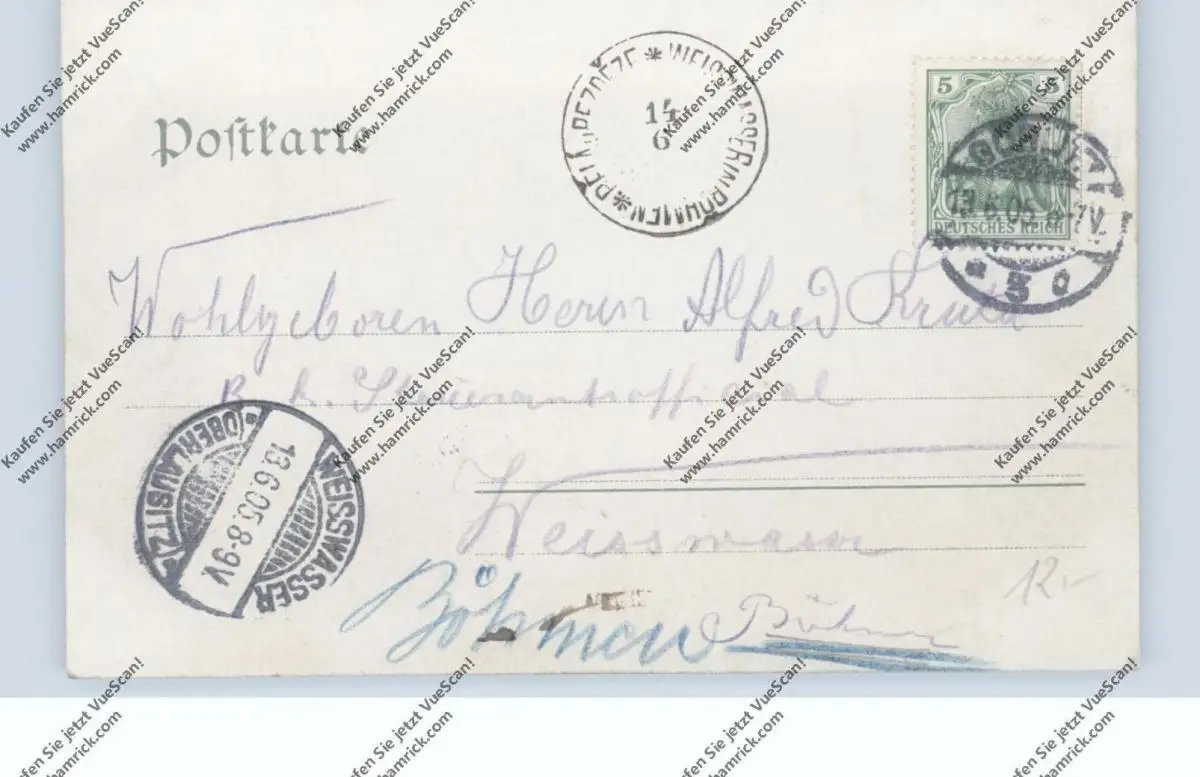 Postkarte
WEISSWASSER IN BÖHMEN * BĚLÁ U BEZDĚZE *
14
6
5 5
DEUTSCHES REICH
13.6.05. 6-7V.
* 3 o
Wohlgeboren Herrn Alfred
k. k. Steueramtsofficial
Weisswasser
Böhmen
Böhmen
12.-
WEISSWASSER
13.6.05.8-9V.
(OBERLAUSITZ)
Kaufen Sie jetzt VueScan!
www.hamrick.com